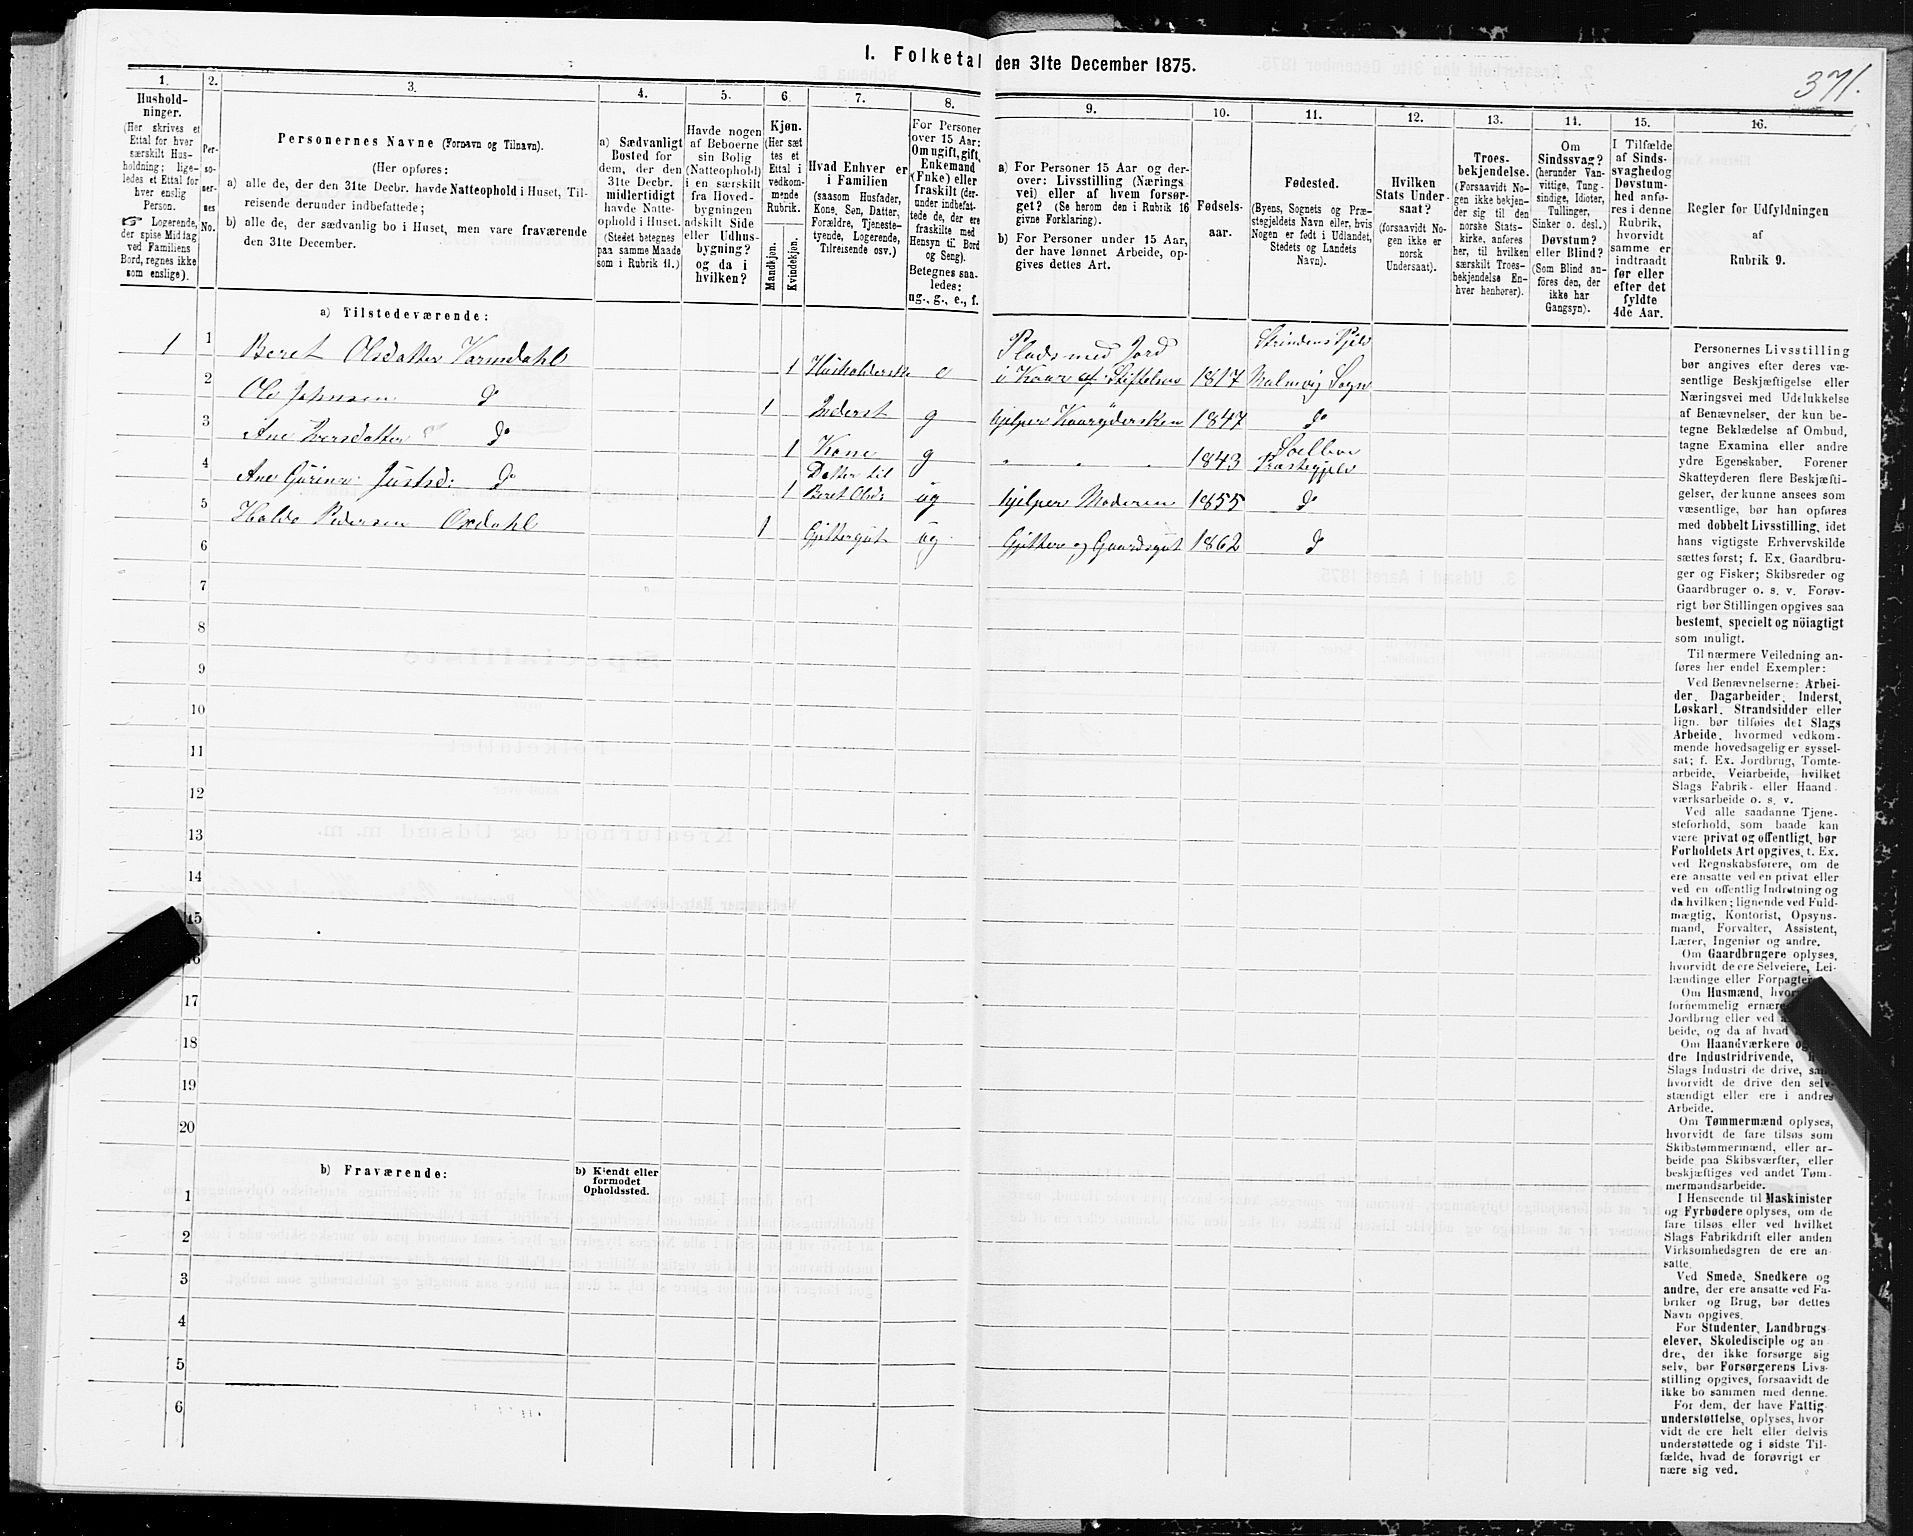 I. Folketal den 31te December 1875.
371.
1.
Hushold-
ninger.
(Her skrives et
Ettal for hver
særskilt Hus-
holdning; lige-
ledes et Ettal for
hver enslig
Person.
☞ Logerende,
der spise Middag
ved Familiens
Bord, regnes ikke
som enslige).
2.
Per-
so-
ner-
nes
No.
3.
Personernes Navne (Fornavn og Tilnavn).
(Her opføres:
a) alle de, der den 31te Decbr. havde Natteophold i Huset, Til-
reisende derunder indbefattede;
b) alle de, der sædvanlig bo i Huset, men vare fraværende
den 31te December.
4.
a) Sædvanligt
Bosted for
dem, der den
31te Decbr.
midlertidigt
havde Natte-
ophold i Huset.
(Stedet betegnes
paa samme Maade
som i Rubrik 11.)
5.
Havde nogen
af Beboerne
sin Bolig
(Natteophold)
i en særskilt
fra Hoved-
bygningen
adskilt Side
eller Udhus-
bygning?
og da i
hvilken?
6.
Kjøn.
(Her sæt-
tes et
Ettal i
vedkom-
mende
Rubrik.
Mandkjøn.
Kvindekjøn.
7.
Hvad Enhver er
i Familien
(saasom Husfader,
Kone, Søn, Datter,
Forældre, Tjeneste-
tyende, Logerende,
Tilreisende osv.)
8.
For Personer
over 15 Aar:
Om ugift, gift,
Enkemand
(Enke) eller
fraskilt (der-
under indbefat-
tede de, der ere
fraskilte med
Hensyn til Bord
og Seng).
Betegnes saa-
ledes:
ug., g., e., f.
9.
a) For Personer 15 Aar og der-
over: Livsstilling (Nærings
vei) eller af hvem forsør-
get? (Se herom den i Rubrik 16
givne Forklaring).
b) For Personer under 15 Aar,
der have lønnet Arbeide, op-
gives dettes Art.
10.
Fødsels-
aar.
11.
Fødested.
(Byens, Sognets og Præ-
stegjeldets Navn eller, hvis
Nogen er født i Udlandet,
Stedets og Landets
Navn).
12.
Hvilken
Stats Under-
saat?
(forsaavidt No-
gen ikke er
norsk
Undersaat).
13.
Troes-
bekjendelse.
(Forsaavidt No-
gen ikke bekjen-
der sig til den
norske Stats-
kirke, anføres
her, til hvilken
særskilt Troes-
bekjendelse En-
hver henhører).
14.
Om
Sindssvag?
(herunder Van-
vittige, Tung-
sindige, Idioter,
Tullinger,
Sinker o. desl.)
Døvstum?
eller Blind?
(Som Blind an-
føres den, der
ikke har
Gangsyn).
15.
I Tilfælde
af Sinds-
svaghed og
Døvstum-
hed anfø-
res i denne
Rubrik,
hvorvidt
samme er
indtraadt
før eller
efter det
fyldte
4de Aar.
16.
Regler for Udfyldningen
af
Rubrik 9.
a) Tilstedeværende:
1 1 Beret Olsdatter Varmdahl 1 Husholderske e Plads med Jord i Kaar af Stiftelsen 1817 Strindens Pjeld Malmvig Sogn
2 Ole Johnsen Do 1 Inderst g hjelper Kaarydersken 1847 Do
3 Ane Iversdatter Do 1 Kone g " " " 1843 Selbo Præstegjeld
4 Ane Gurine Justsd: Do 1 Datter til Beret Olsd: ug hjelper Moderen 1855 Do
5 Haldo Pedersen Oxdahl 1 Gjættergut ug Gjætter og Gaardsgut 1862 Do
6
7
8
9
10
11
12
13
14
15
16
17
18
19
20
b) Fraværende:
b) Kjendt eller
formodet
Opholdssted.
1
2
3
4
5
6
Personernes Livsstilling
bør angives efter deres væ-
sentlige Beskjæftigelse eller
Næringsvei med Udelukkelse
af Benævnelser, der kun be-
tegne Beklædelse af Ombud,
tagne Examina eller andre
ydre Egenskaber. Forener
Skatteyderen flere Beskjæfti-
gelser, der kunne ansees som
væsentlige, bør han opføres
med dobbelt Livsstilling, idet
hans vigtigste Erhvervskilde
sættes først; f. Ex. Gaardbru-
ger og Fisker; Skibsreder og
Gaardbruger o. s. v. Forøv-
rigt bør Stillingen opgives saa
bestemt, specielt og nöiagtigt
som muligt.
Til nærmere Veiledning an-
føres her endel Exempler:
Ved Benævnelserne: Arbei-
der, Dagarbeider, Inderst,
Løskarl, Strandsidder eller
lign. bør tilføies det Slags
Arbeide, hvormed vedkom-
mende hovedsagelig er syssel-
sat; f. Ex. Jordbrug, Tomte-
arbeide, Veiarbeide, hvilket
Slags Fabrik- eller Haand-
værksarbeide o. s. v.
Ved alle saadanne Tjene-
steforhold, som baade kan
være privat og offentligt, bør
Forholdets Art opgives, t. Ex.
ved Regnskabsførere, om de
ere ansatte ved en privat eller
ved en offentlig Indretning og
da hvilken; lignende ved Fuld-
mægtig, Kontorist, Opsyns-
mand, Forvalter, Assistent,
Lærer, Ingeniør og andre.
Om Gaardbrugere oplyses,
hvorvidt de ere Selveiere, Lei-
lændinge eller Forpagtere
Om Husmænd,
fornemmelig ernære
Jordbrug eller ved
beide, og da af hvad
Om Haandværkere og
dre Industridrivende,
Slags Industri de drive, samt
hvorvidt de drive den selv-
stændigt eller ere i andres
Arbeide.
Om Tømmermænd oplyses,
hvorvidt de fare tilsøs som
Skibstømmermænd, eller ar-
beide paa Skibsværfter, eller
beskjæftiges ved andet Tøm-
mermandsarbeide.
I Henseende til Maskinister
og Fyrbødere oplyses, om de
fare tilsøs eller ved hvilket
Slags Fabrikdrift eller anden
Virksomhedsgren de ere an-
satte.
Ved Smede, Snedkere og
andre, der ere ansatte ved Fa-
briker og Brug, bør dettes
Navn opgives.
For Studenter, Landbrugs-
elever, Skoledisciple og an-
dre, der ikke forsørge sig
selv, bør Forsørgerens Livs-
stilling opgives, forsaavidt de
ikke bo sammen med denne.
For dem, der have Fattig-
understøttelse, oplyses, hvor
vidt de ere helt eller delvis
understøttede og i sidste Til-
fælde, hvad de forøvrigt er
nære sig ved.